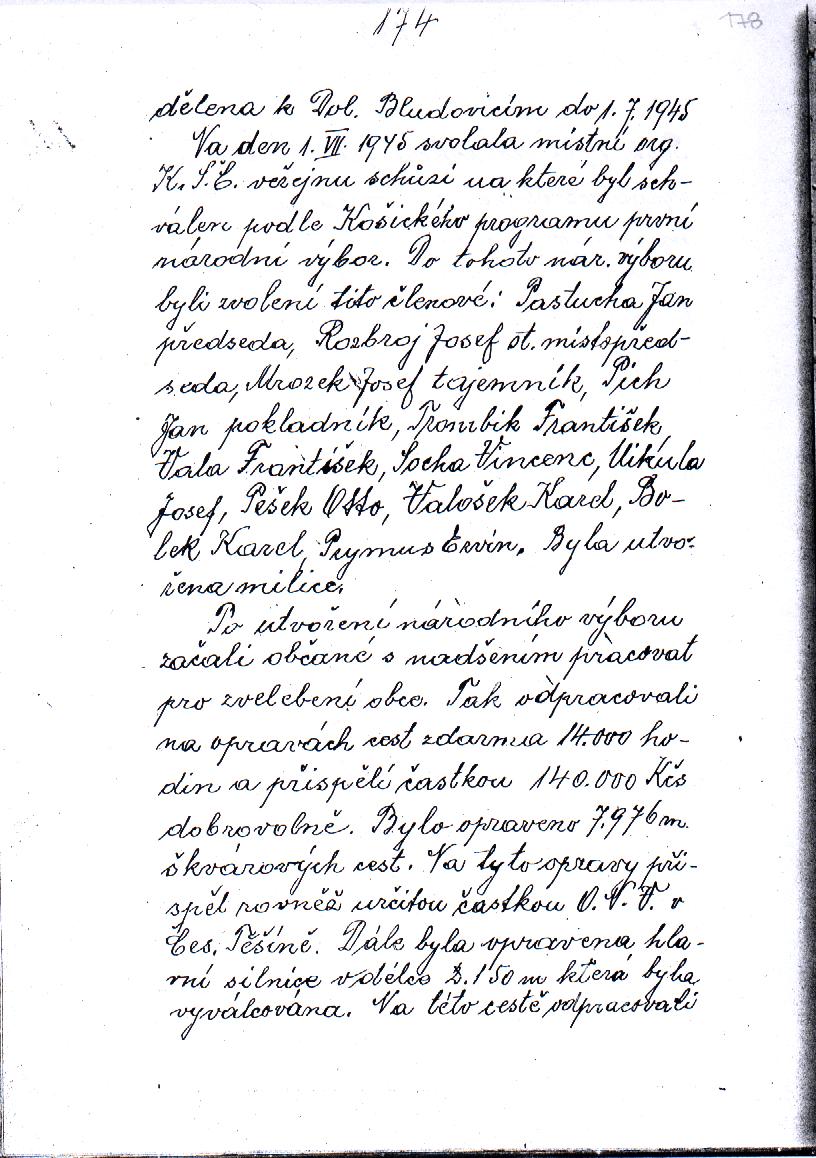 174
178
dělena k Dol. Bludovicím do 1. 7. 1945
Na den 1. VII. 1945 svolala místní org.
K.S.Č. veřejnu schůzi na které byl sch-
válen podle Košického programu první
národní výbor. Do tohoto nár. výboru
byli zvolení tito členové: Pastucha Jan
předseda, Rozbroj Josef st. místopřed-
seda, Mrozek Josef tajemník, Pich
Jan pokladník, Trombik František,
Vala František, Socha Vincenc, Uikula
Josef, Pešek Otto, Valošek Karel, Bo-
lek Karel, Prymus Ervín. Byla utvo-
řena milice.
Po utvoření národního výboru
začali občané s nadšením pracovat
pro zvelebení obce. Tak odpracovali
na opravách cest zdarma 14.000 ho-
din a přispělí častkou 140.000 Kčs
dobrovolně. Bylo opraveno 7.976 m.
škvárových cest. Na tyto opravy při-
spěl rovněž určitou častkou O.N.V. v
Čes. Těšíně. Dále byla opravena hla-
vní silnice v délce 2.150 m která byla
vyválcována. Na této cestě odpracovali